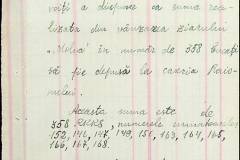 voiți a dispune ca suma rea-
lizata din vânzarea ziarului
în număr de 558 Cuveți
să fie depusă la casieria Raio-
nului.
Aceasta suma este de
358 numerele următoarelor
152, 146, 147, 149, 150, 163, 164, 165,
166, 167, 168.